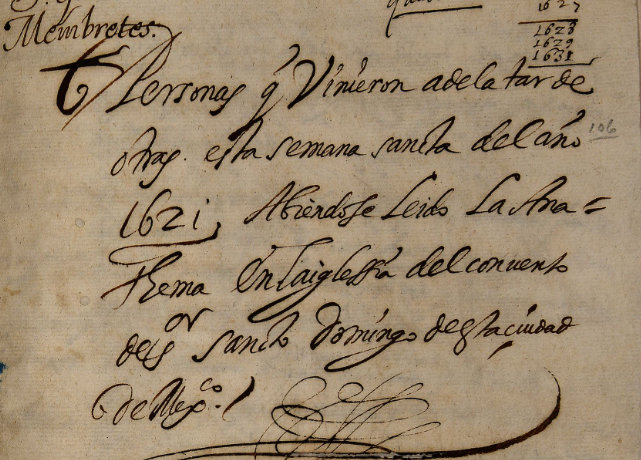 1627
1628
1629
1631
Membretes.
Personas q̃ Vinieron adelatar de
otras. esta semana sancta del año
106
1621, Abiendose Leido La Ana=
thema En laiglessia del convento
del s.or sancto Domingo de esta ciudad
de Mex.co